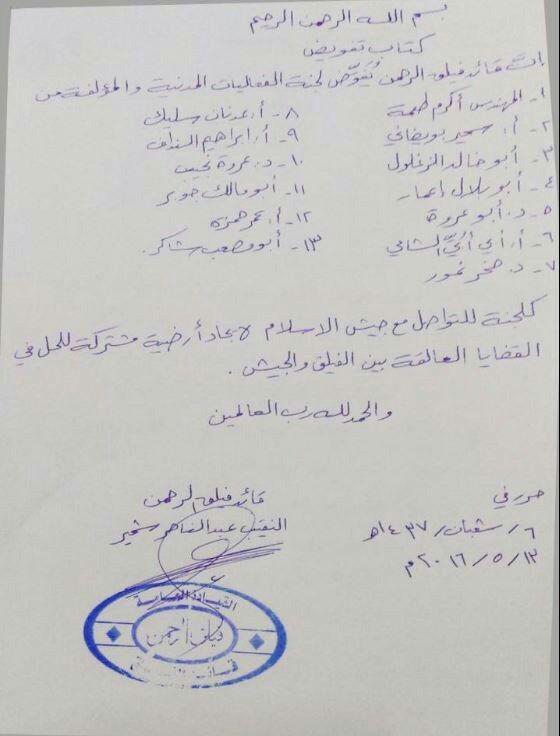 بسم الله الرحمن الرحيم
كتاب تفويض
قائد فيلق الرحمن يُفوّض لجنة الفعاليات المدنية والمؤلفة من
١- المهندس أكرم طعمة
٢- أ. سمير بويضاني
٣- أبو خالد الزغلول
٤- أبو بلال دعاس
٥- د. أبو عروة
٦- أ. أبي الشامي
٧- د. صخر نمور
٨- أ. عدنان سليك
٩- أ. ابراهيم
١٠- د. عروة نجيب
١١- أبو مالك جوبر
١٢- أ. عمر حمزة
١٣- أبو مصعب شاكر.
كلجنة للتواصل مع جيش الاسلام لايجاد أرضية مشتركة للحل في
القضايا العالقة بين الفيلق والجيش.
والحمد لله رب العالمين
حرر في
٦/شعبان/١٤٣٧هـ
١٣/٥/٢٠١٦م
قائد فيلق الرحمن
النقيب عبد الناصر شمير
القيادة العامة
فيلق الرحمن